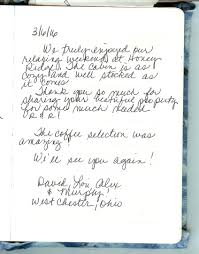 3/6/16
We truly enjoyed our
relaxing weekend at Honey
Ridge! The cabin is as
cozy and well stocked as
it comes.
Thank you so much for
sharing your beautiful property
for some much needed
R & R!
The coffee selection was
amazing!
We'll see you again!
David, Lori, Alex
& Murphy!
West Chester, Ohio